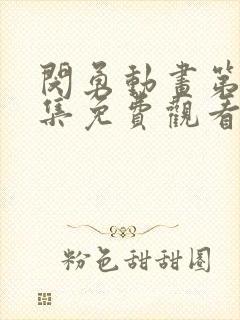 閃勇動畫第
集免費觀看
粉色甜甜圈